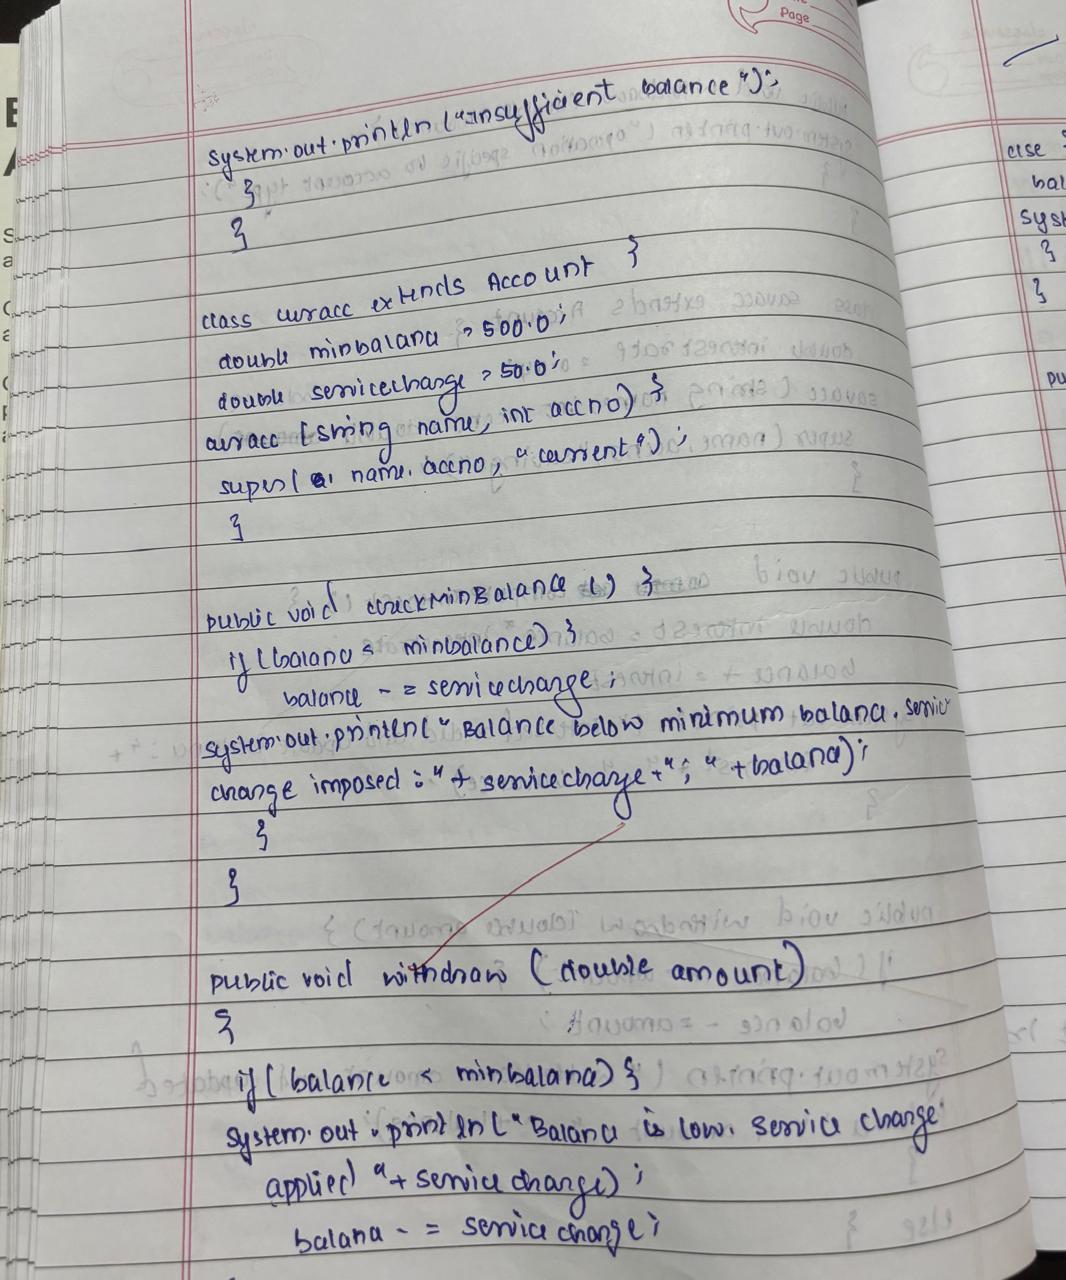 Page
system.out.println("Insufficient balance");
}
}
class curacc extends Account }
double minbalance = 500.0;
double servicecharge = 50.0;
curacc (string name, int accno) }
super( name. accno, "current");
}
public void checkMinBalance () }
if (balance < minbalance) }
balance - = servicecharge;
system.out.println(" Balance below minimum balance. servic
charge imposed :" + servicecharge +"; " +balance);
}
}
public void withdraw (double amount)
}
if ( balance < minbalance) }
system.out.println("Balance is low. service charge
applied "+ service charge);
balance - = service charge;
else
bal
syst
}
}
pu